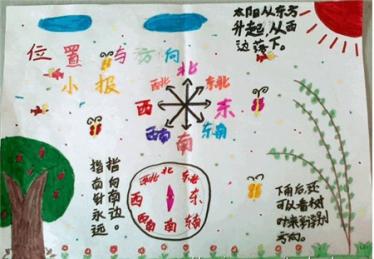 太阳从东方
升起，从西
边落下。
位置与方向
小报
北
西北 东北
西 东
西南 南 东南
指南针永远
指向南边。
北
西北 东北
西 东
西南 南 东南
下雨后还
可以看树
叶来辨别
方向。